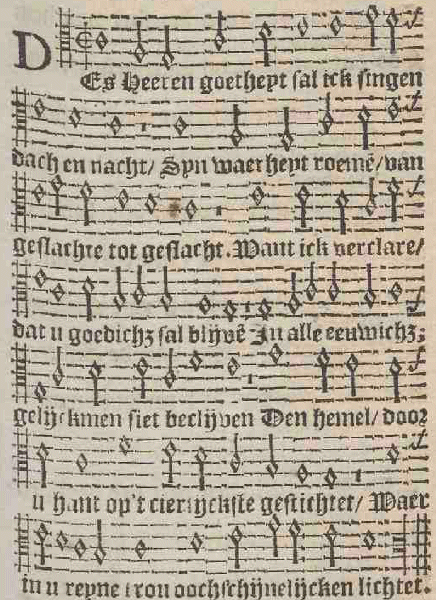 DEs Heeren goetheyt sal ick singen
dach en nacht/ Syn waerheyt roemē/ van
geslachte tot geslacht. Want ick verclare/
dat u goedichz sal blijvē In alle eeuwichz;
gelijckmen siet beclijven Den hemel/ door
u hant op't cierlijckste gestichtet/ Waer
in u reyne trou oochschijnelijcken lichtet.